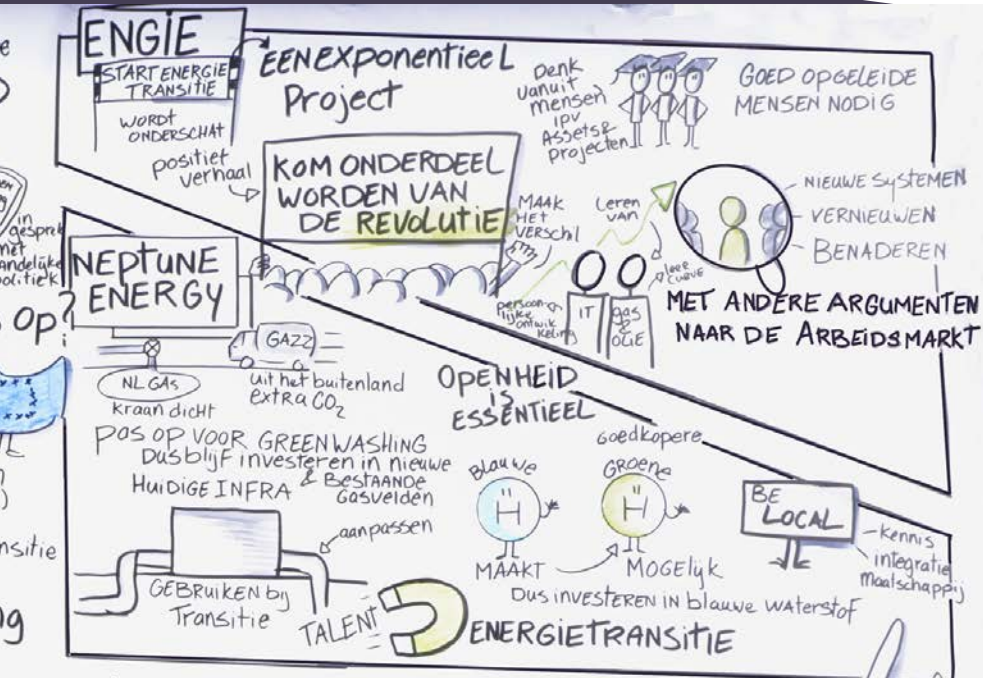 ENGIE
START ENERGIE
TRANSITIE
WORDT
ONDERSCHAT
EEN EXPONENTIEEL
Project
positief
verhaal
KOM ONDERDEEL
WORDEN VAN
DE REVOLUTIE
Denk
vanuit
mensen
ipv
Assets &
projecten
GOED OPGELEIDE
MENSEN NODIG
MAAK
HET
VERSCHIL
Leren
VAN
leer
curve
persoon-
lijke
ontwik
keling
IT
gas
&
OLIE
NIEUWE SYSTEMEN
VERNIEUWEN
BENADEREN
MET ANDERE ARGUMENTEN
NAAR DE ARBEIDSMARKT
in
gesprek
met
landelijke
politiek
Op?
NEPTUNE
ENERGY
GAZZ
NL GAS
kraan dicht
uit het buitenland
extra CO2
OPENHEID
IS
ESSENTIEEL
PAS OP VOOR GREENWASHING
Dus blijf investeren in nieuwe
& BESTAANDE
Gasvelden
HUIDIGE INFRA
aanpassen
GEBRUIKEN bij
Transitie
Goedkopere
Blauwe
GROENE
H
H
MAAKT
MOGELIJK
DUS INVESTEREN IN blauwe WATERSTOF
BE
LOCAL
kennis
integratie
Maatschappij
TALENT
ENERGIETRANSITIE
nsitie